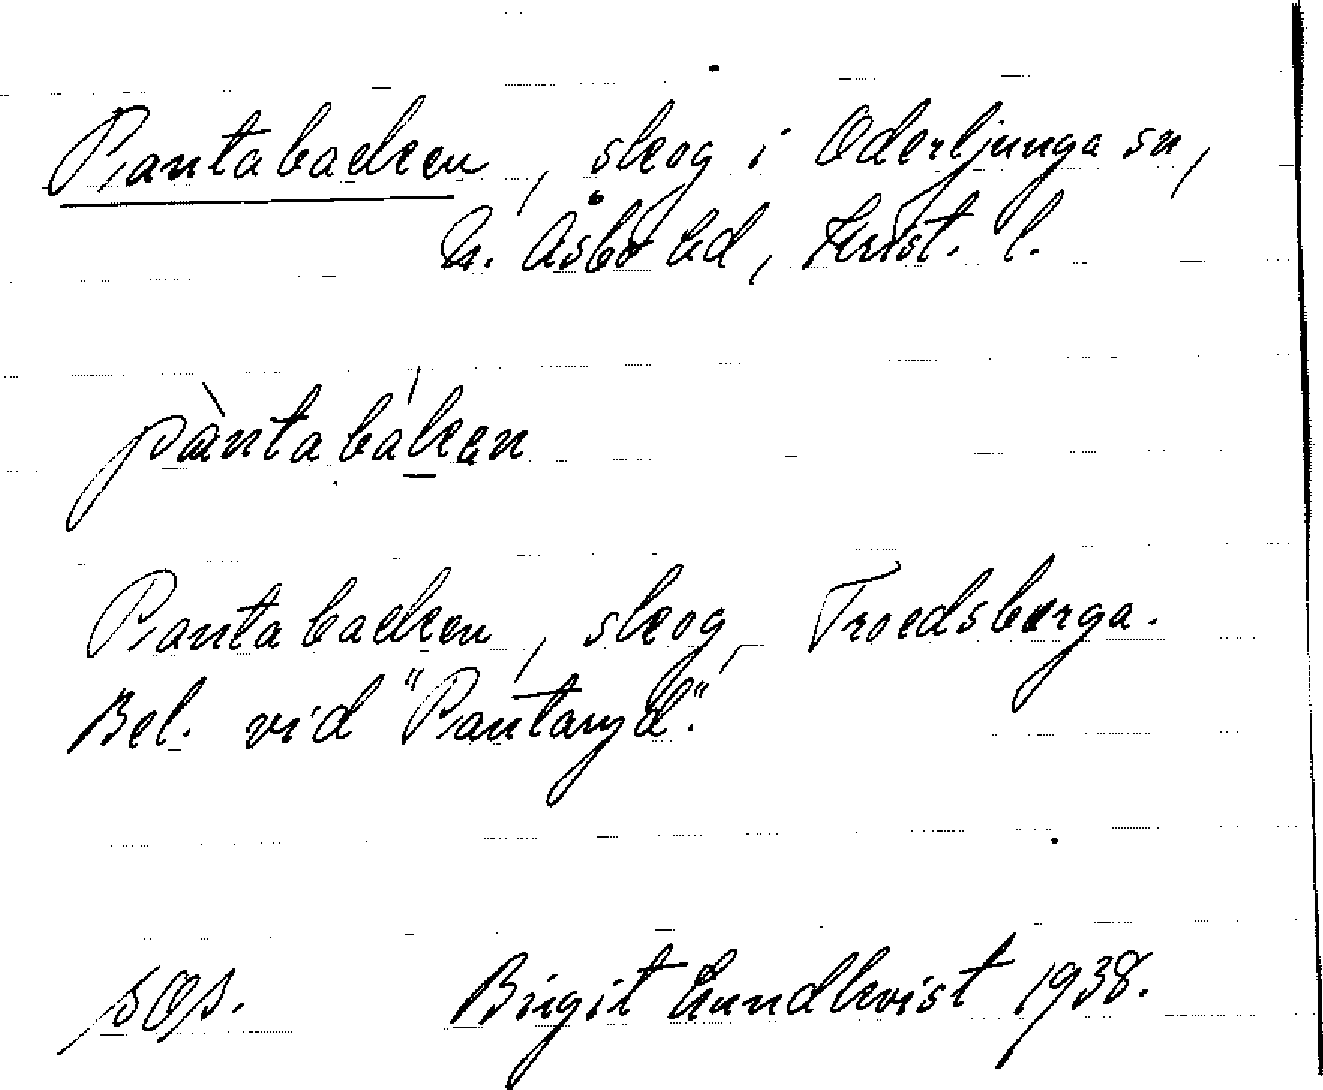 Pantabacken, skog i Oderljunga sn,
N. Åsbo hd, Krist. l.
pàntabákan
Pantabacken, skog, Troedsberga.
Bel. vid "Pantaryd".
Birgit Lundkvist 1938.